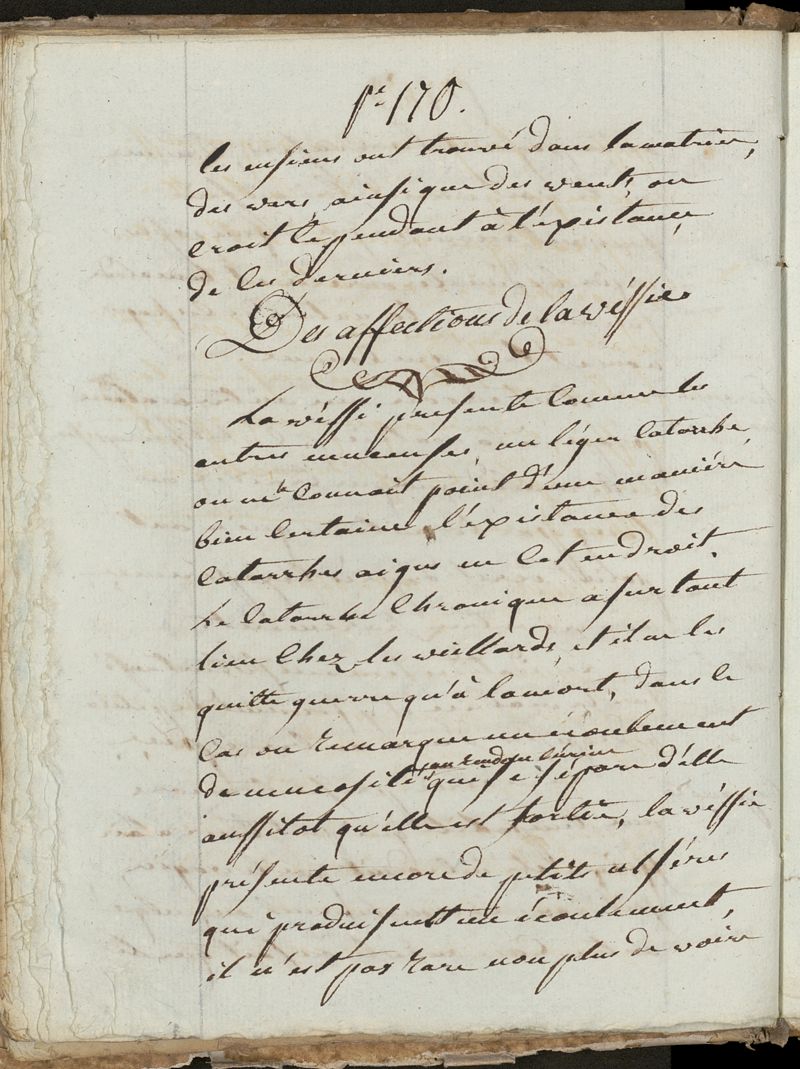 pe 170.
les ensiens ont trouvé dans lamatrice,
des vers, ainsique des vents, on
croit cependant à l'expistance
de ces derniers.
Des affections de la véssie
La véssi présente comme les
autres muceuses, un léger catarrhe
on ne connait point d'une maniére
bien certaine l'expistance des
catarrhes aigus en cet endroit.
Le catarrhe chronique a surtout
lieu chez les vieillards, et il ne les
quitte guerre qu'à lamort, dans ce
cas on remarque un écoulement
de mucosité qui se sépare d'elle
aussitot qu'elle est sortie, la véssie
présente encore de petits ulséres
qui produisent un écoulement,
il n'est pas rare non plus de voire